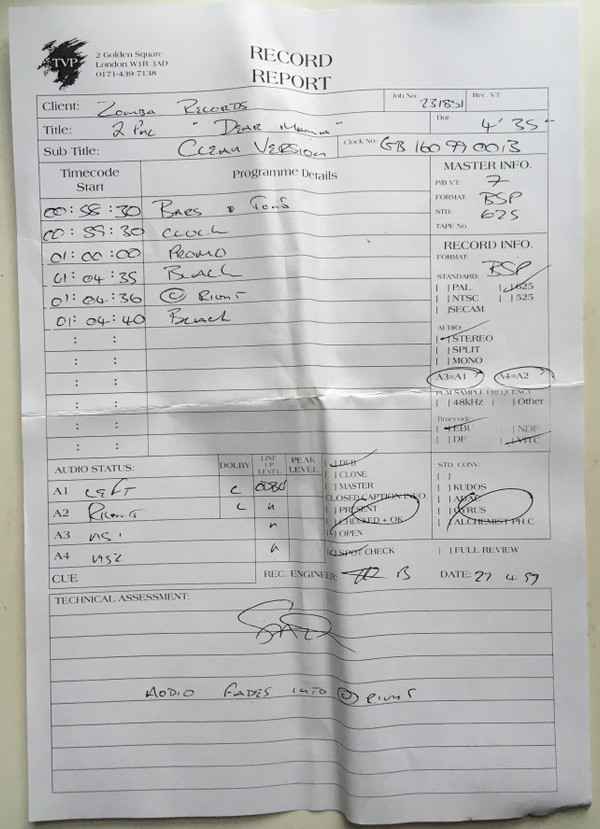 TVP
2 Golden Square
London W1R 3AD
0171-439-7138
RECORD
REPORT
Client: Zomba Records
Job No:
Rec. VT:
Title: 2 Pac "Dear Mama"
Dur: 4' 35"
Sub Title: Clean Version
Clock No: GB 160 99 0013
Timecode
Start
Programme Details
00:58:30 Bars & Tone
00:59:30 Clock
01:00:00 Promo
01:04:35 Black
01:04:36 © Right
01:04:40 Black
: :
: :
: :
: :
: :
MASTER INFO.
P/B VT: 7
FORMAT: BSP
STD: 625
TAPE No.
RECORD INFO.
FORMAT: BSP
STANDARD:
[ ] PAL [ ] 625
[ ] NTSC [ ] 525
[ ] SECAM
AUDIO:
[ ] STEREO
[ ] SPLIT
[ ] MONO
A3=A1 A4=A2
PCM SAMPLE FREQUENCY
[ ] 48kHz [ ] Other
Timecode:
[ ] EBU [ ] NDF
[ ] DF [ ] VITC
AUDIO STATUS:
DOLBY
LINE UP LEVEL
PEAK LEVEL
A1 Left
A2 Right
A3
A4
CUE
[ ] DUB
[ ] CLONE
[ ] MASTER
CLOSED CAPTION INFO.
[ ] PRESENT
[ ] CHECKED + OK
[ ] OPEN
STD. CONV.
[ ]
[ ] KUDOS
[ ] ADAC
[ ] CYRUS
[ ] ALCHEMIST PH.C
[ ] SPOT CHECK
[ ] FULL REVIEW
REC. ENGINEER:
DATE: 27 4 99
TECHNICAL ASSESSMENT:
Audio fades into © right